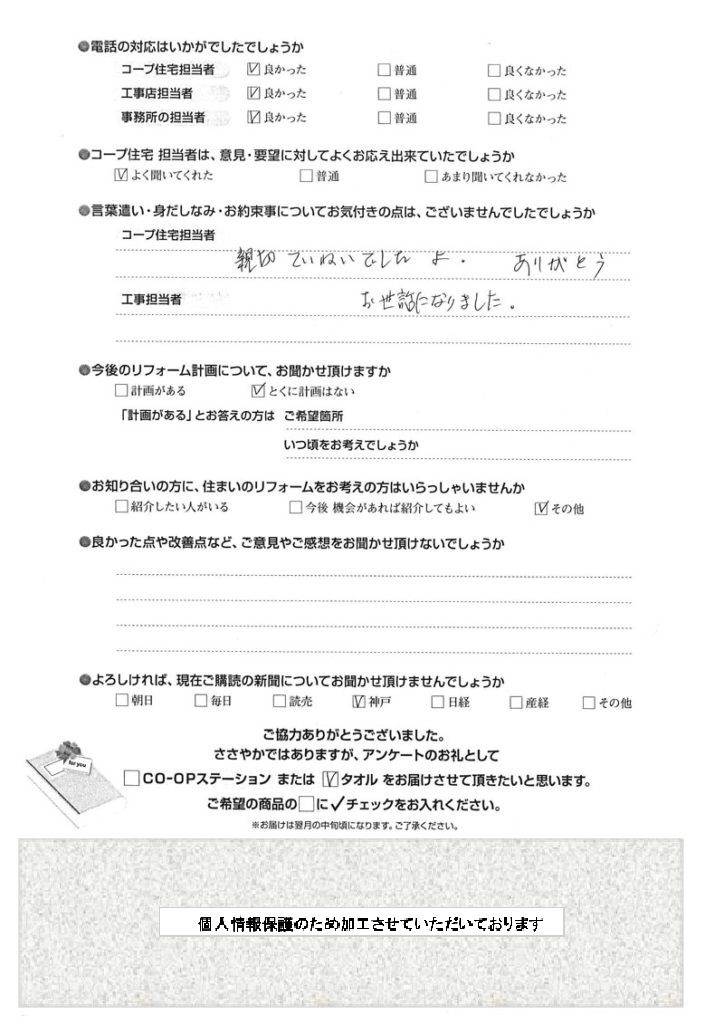 ●電話の対応はいかがでしたでしょうか
コープ住宅担当者 ☑良かった □普通 □良くなかった
工事店担当者 ☑良かった □普通 □良くなかった
事務所の担当者 ☑良かった □普通 □良くなかった
●コープ住宅 担当者は、意見・要望に対してよくお応え出来ていたでしょうか
☑よく聞いてくれた □普通 □あまり聞いてくれなかった
●言葉遣い・身だしなみ・お約束事についてお気付きの点は、ございませんでしたでしょうか
コープ住宅担当者
親切 ていねいでしたよ. ありがとう
工事担当者 お世話になりました.
●今後のリフォーム計画について、お聞かせ頂けますか
□計画がある ☑とくに計画はない
「計画がある」とお答えの方は ご希望箇所
いつ頃をお考えでしょうか
●お知り合いの方に、住まいのリフォームをお考えの方はいらっしゃいませんか
□紹介したい人がいる □今後 機会があれば紹介してもよい ☑その他
●良かった点や改善点など、ご意見やご感想をお聞かせ頂けないでしょうか
●よろしければ、現在ご購読の新聞についてお聞かせ頂けませんでしょうか
□朝日 □毎日 □読売 ☑神戸 □日経 □産経 □その他
ご協力ありがとうございました。
ささやかではありますが、アンケートのお礼として
for you
□CO-OPステーション または ☑タオル をお届けさせて頂きたいと思います。
ご希望の商品の□に✓チェックをお入れください。
※お届けは翌月の中旬頃になります。ご了承ください。
個人情報保護のため加工させていただいております